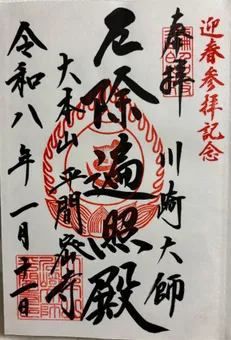 迎春参拝記念
奉拝
川崎大師
厄除遍照殿
大本山平間寺
令和八年一月十一日